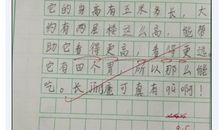 它的身高有五米多长，大
约有两层楼这么高，能帮
助它看得更高，看得更远
它有四个胃，所以那么能
吃。长颈鹿可真有趣啊！